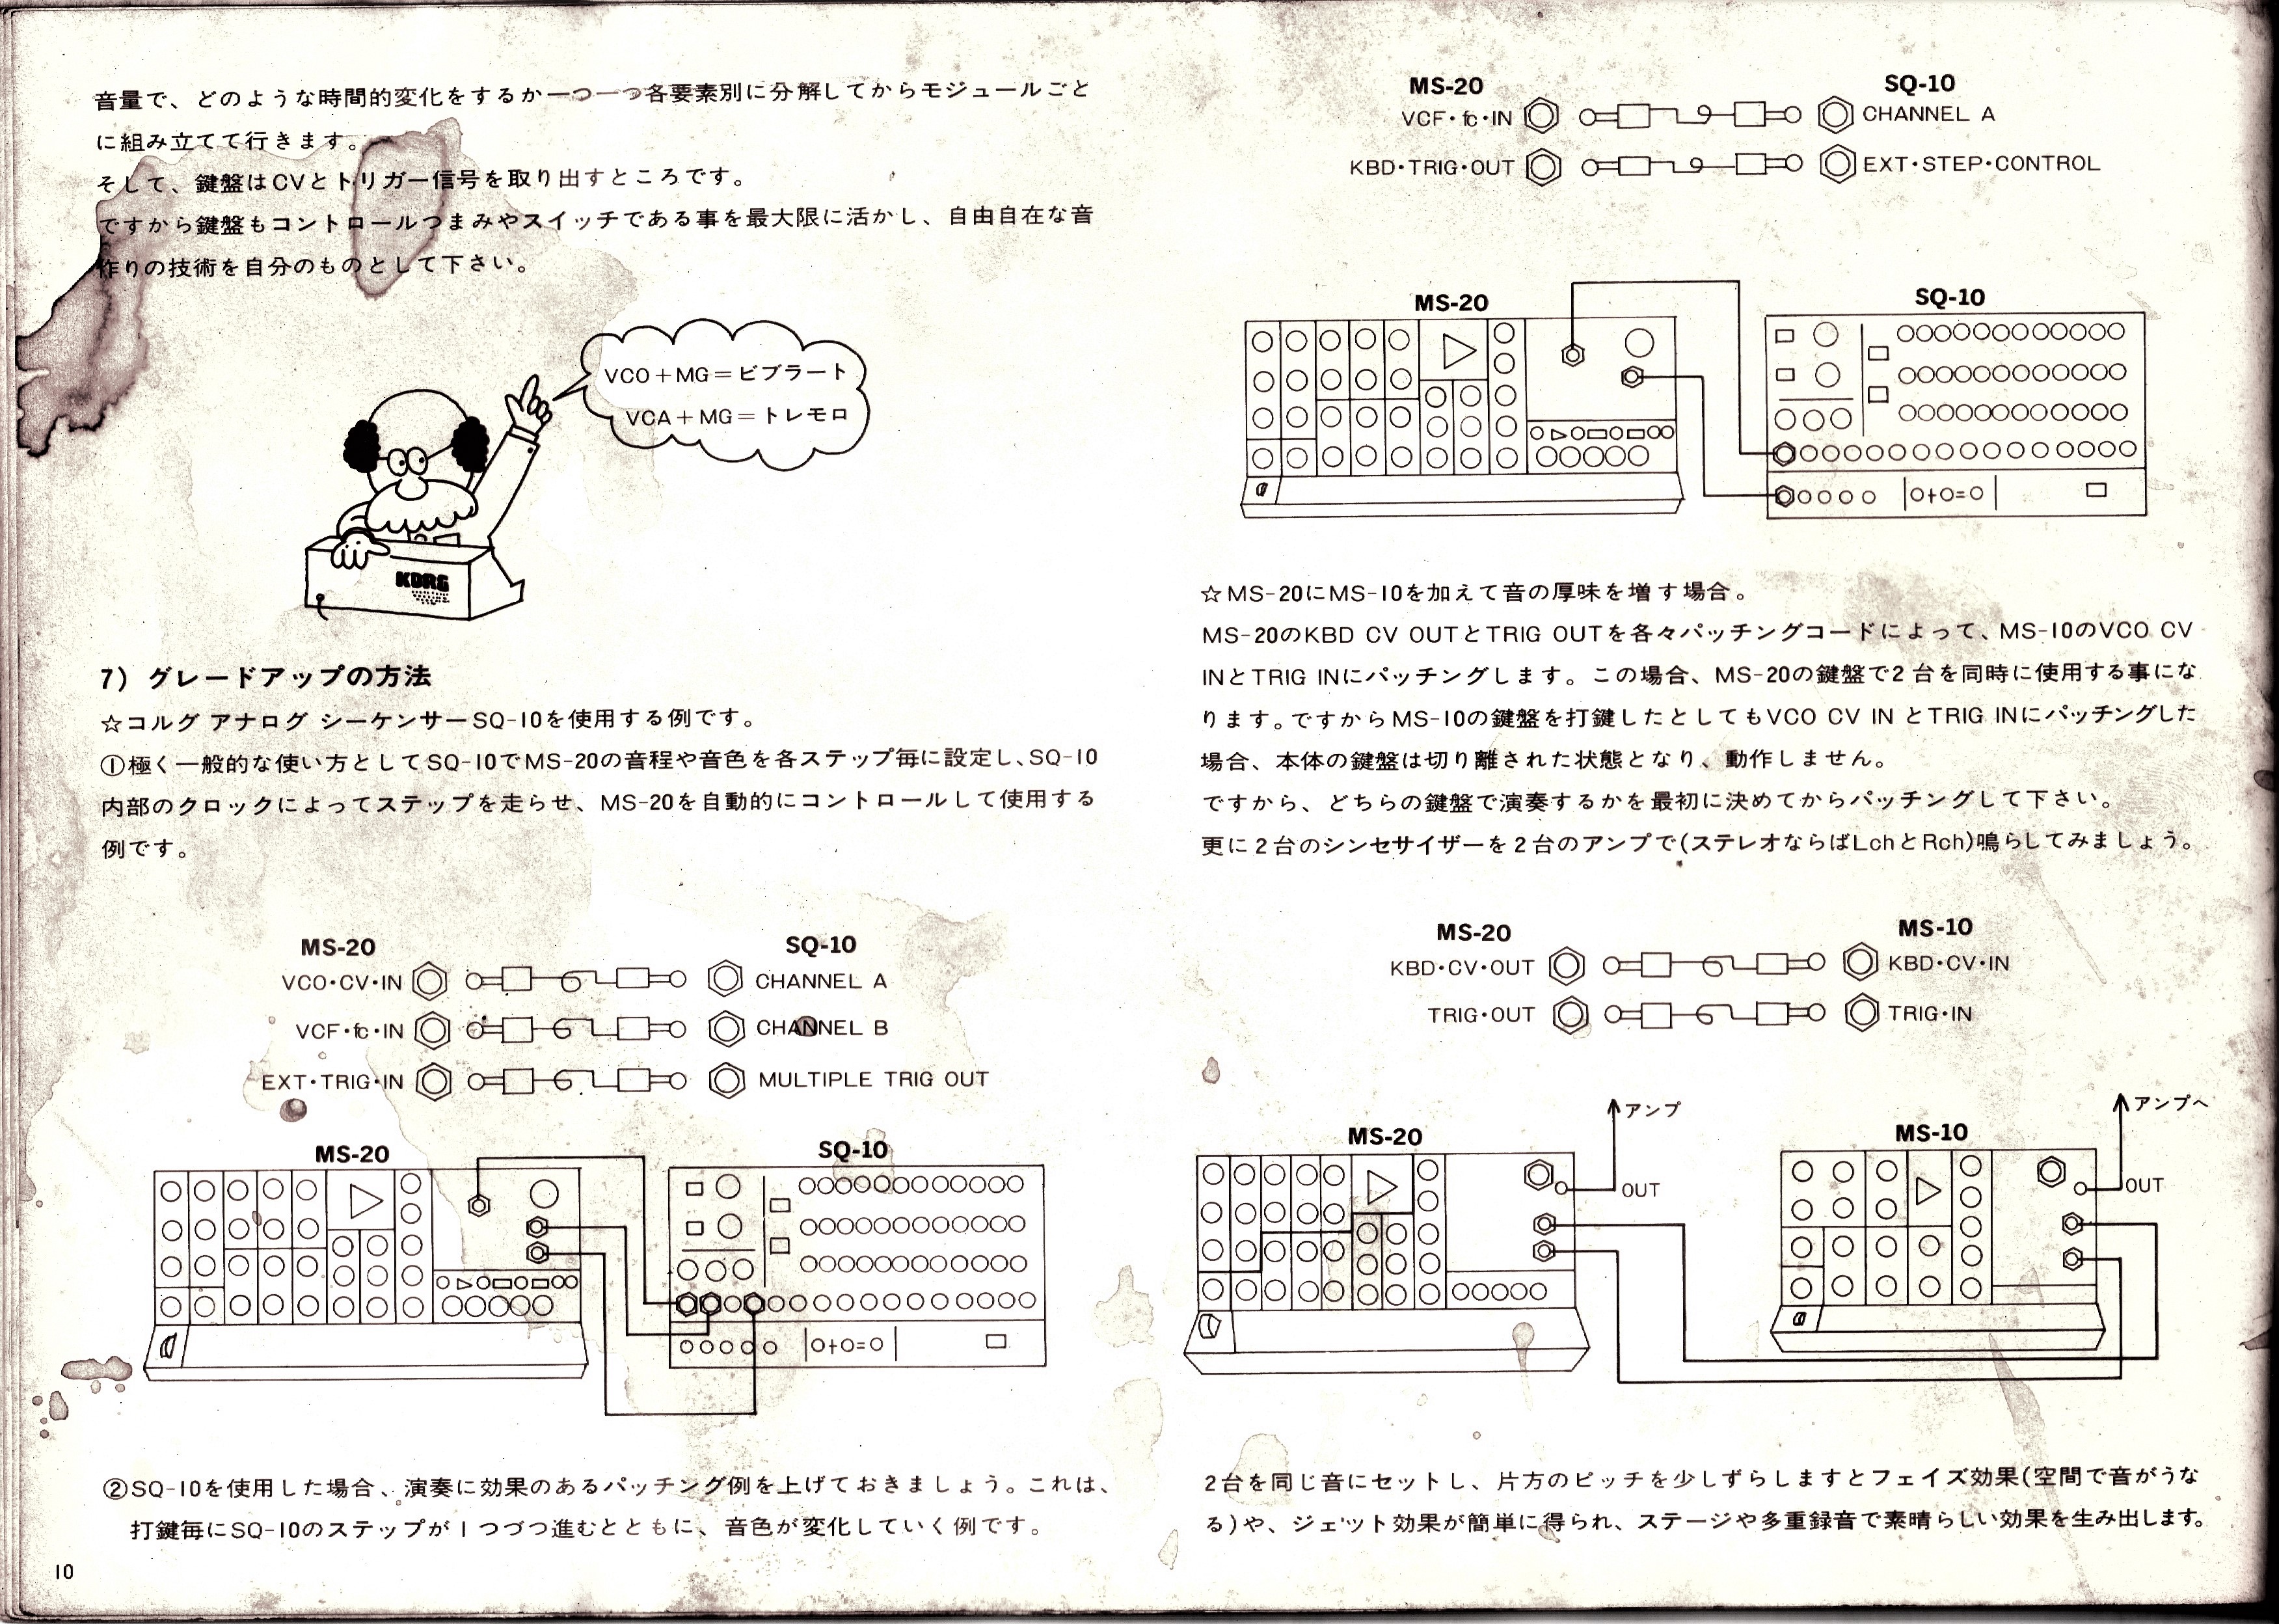 音量で、どのような時間的変化をするか一つ一つ各要素別に分解してからモジュールごと
に組み立てて行きます。
そして、鍵盤はCVとトリガー信号を取り出すところです。
ですから鍵盤もコントロールつまみやスイッチである事を最大限に活かし、自由自在な音
作りの技術を自分のものとして下さい。
VCO+MG=ビブラート
VCA+MG=トレモロ
KORG
7) グレードアップの方法
☆コルグ アナログ シーケンサーSQ-10を使用する例です。
①極く一般的な使い方としてSQ-10でMS-20の音程や音色を各ステップ毎に設定し、SQ-10
内部のクロックによってステップを走らせ、MS-20を自動的にコントロールして使用する
例です。
MS-20 SQ-10
VCO・CV・IN CHANNEL A
VCF・fc・IN CHANNEL B
EXT・TRIG・IN MULTIPLE TRIG OUT
MS-20 SQ-10
②SQ-10を使用した場合、演奏に効果のあるパッチング例を上げておきましょう。これは、
打鍵毎にSQ-10のステップが1つづつ進むとともに、音色が変化していく例です。
10
MS-20 SQ-10
VCF・fc・IN CHANNEL A
KBD・TRIG・OUT EXT・STEP・CONTROL
MS-20 SQ-10
☆MS-20にMS-10を加えて音の厚味を増す場合。
MS-20のKBD CV OUTとTRIG OUTを各々パッチングコードによって、MS-10のVCO CV
INとTRIG INにパッチングします。この場合、MS-20の鍵盤で2台を同時に使用する事にな
ります。ですからMS-10の鍵盤を打鍵したとしてもVCO CV IN とTRIG INにパッチングした
場合、本体の鍵盤は切り離された状態となり、動作しません。
ですから、どちらの鍵盤で演奏するかを最初に決めてからパッチングして下さい。
更に2台のシンセサイザーを2台のアンプで(ステレオならばLchとRch)鳴らしてみましょう。
MS-20 MS-10
KBD・CV・OUT KBD・CV・IN
TRIG・OUT TRIG・IN
アンプ アンプへ
MS-20 MS-10
OUT OUT
2台を同じ音にセットし、片方のピッチを少しずらしますとフェイズ効果(空間で音がうな
る)や、ジェット効果が簡単に得られ、ステージや多重録音で素晴らしい効果を生み出します。